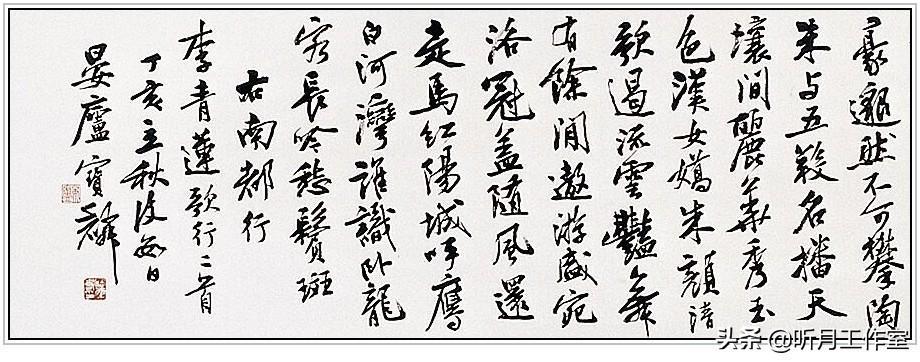 豪邈然不可攀陶
朱与五羖名播天
壤間麗華秀玉
色漢女嬌朱顏清
歌遏流雲豔舞
有餘閒遨游盛宛
洛冠盖随風還
走馬红陽城呼鷹
白河灣誰識卧龍
客長吟愁鬢斑
右南都行
李青蓮歌行二首
丁亥立秋後日
晏廬寶麟
头条 @听月工作室